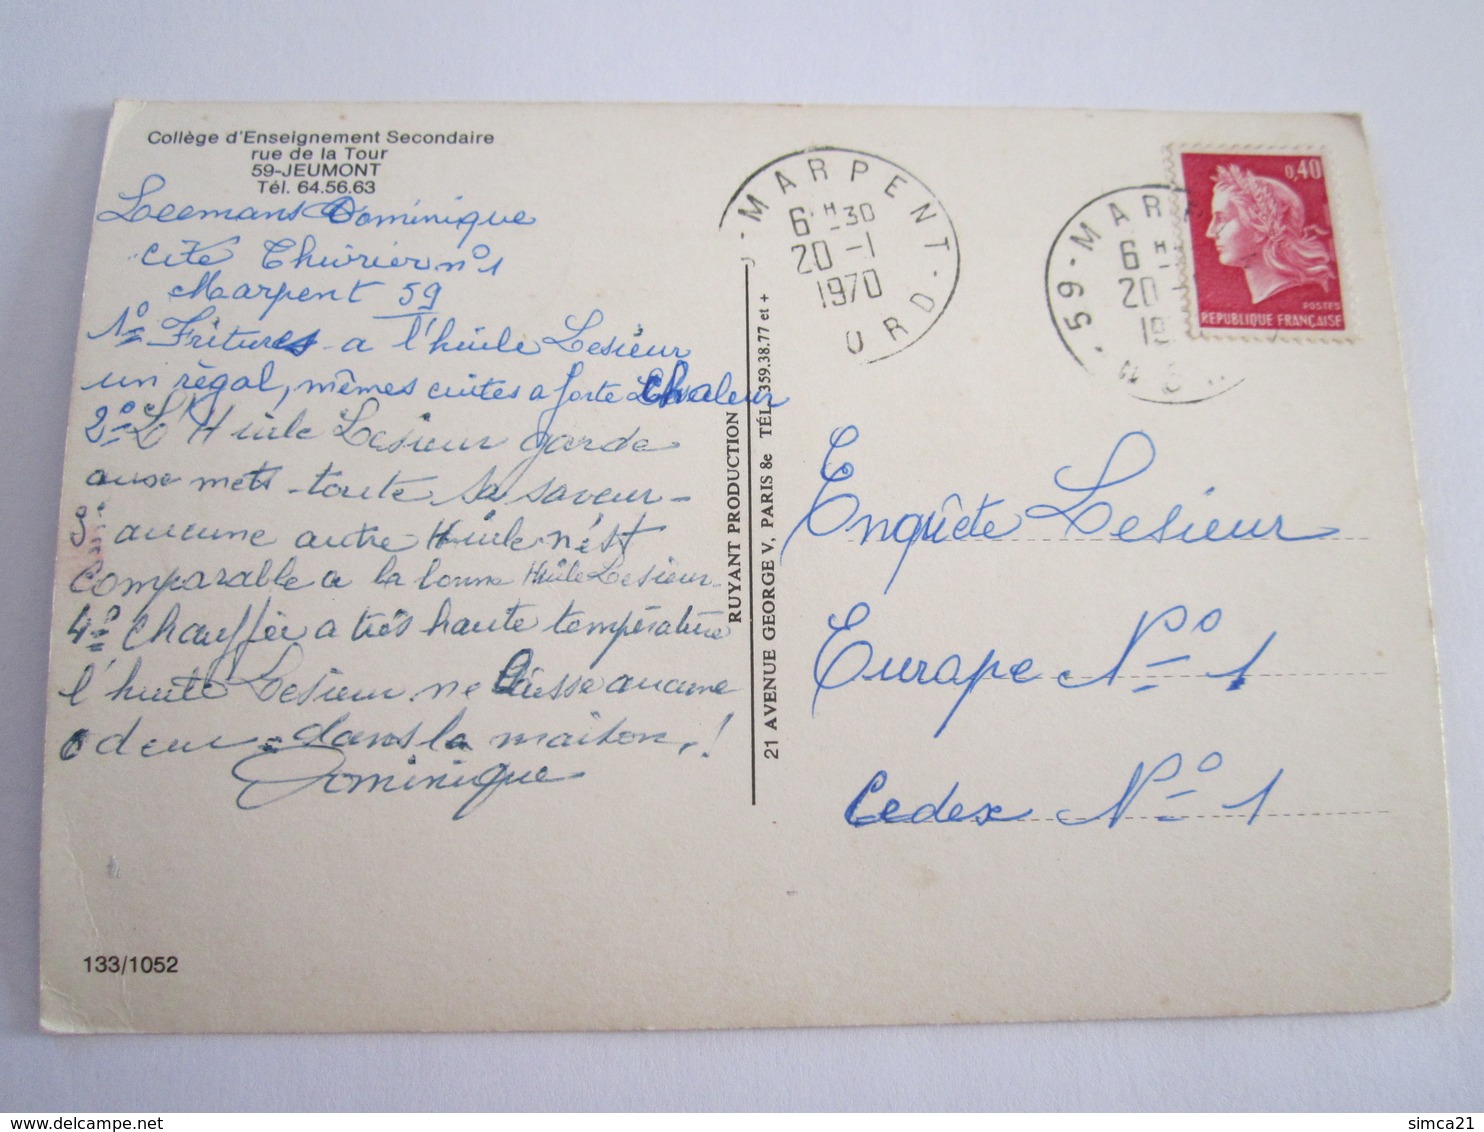 Collège d'Enseignement Secondaire
rue de la Tour
59-JEUMONT
Tél. 64.56.63
Leemans Dominique
cité Thurier n°1
Marpent 59
1° Fritures a l'huile Lesieur
un régal, mêmes cuites a forte chaleur
2° L'Huile Lesieur garde
aux mets toute sa saveur
3° aucune autre Huile n'est
comparable a la bonne Huile Lesieur
4° Chauffée a très haute température
l'huile Lesieur ne laisse aucune
odeur dans la maison !
Dominique
133/1052
RUYANT PRODUCTION
21 AVENUE GEORGE V, PARIS 8e TÉL. 359.38.77 et +
MARPENT
6 H 30
20 - 1
1970
NORD
59 - MARP
6 H
20
19
0,40
POSTES
REPUBLIQUE FRANÇAISE
Enquête Lesieur
Europe N° 1
Cedex N° 1
delcampe.net
simca21